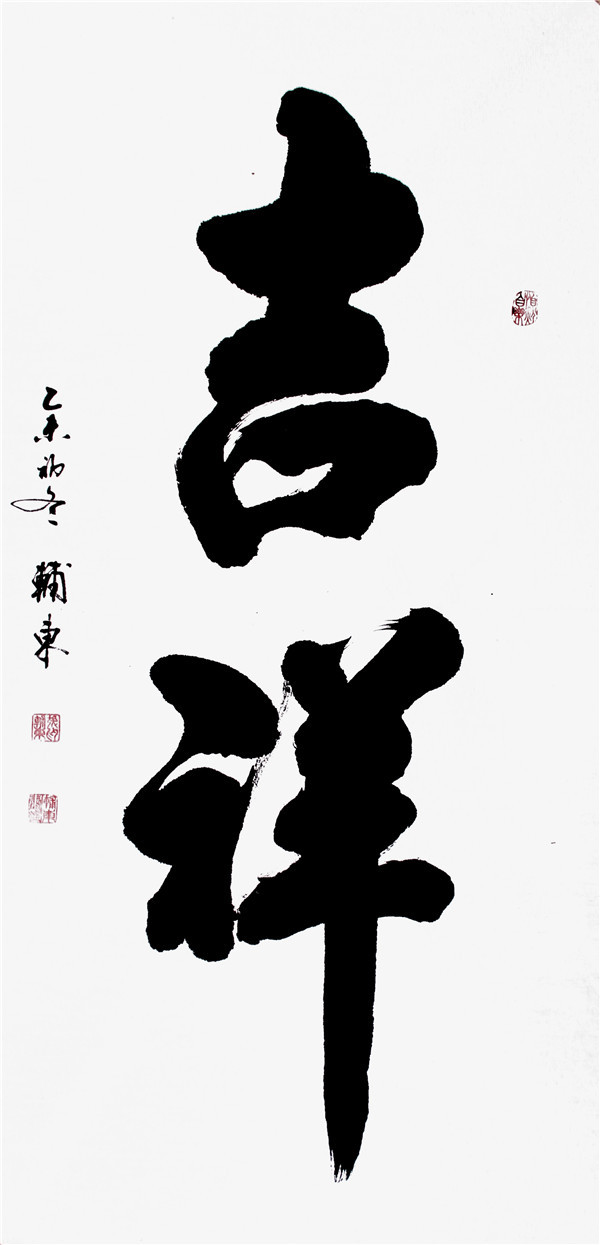 吉祥
乙未初冬 輔東